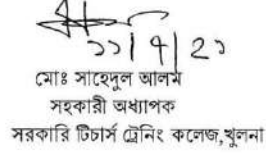 ১১/৭/২১
মোঃ সাহেদুল আলম
সহকারী অধ্যাপক
সরকারি টিচার্স ট্রেনিং কলেজ,খুলনা